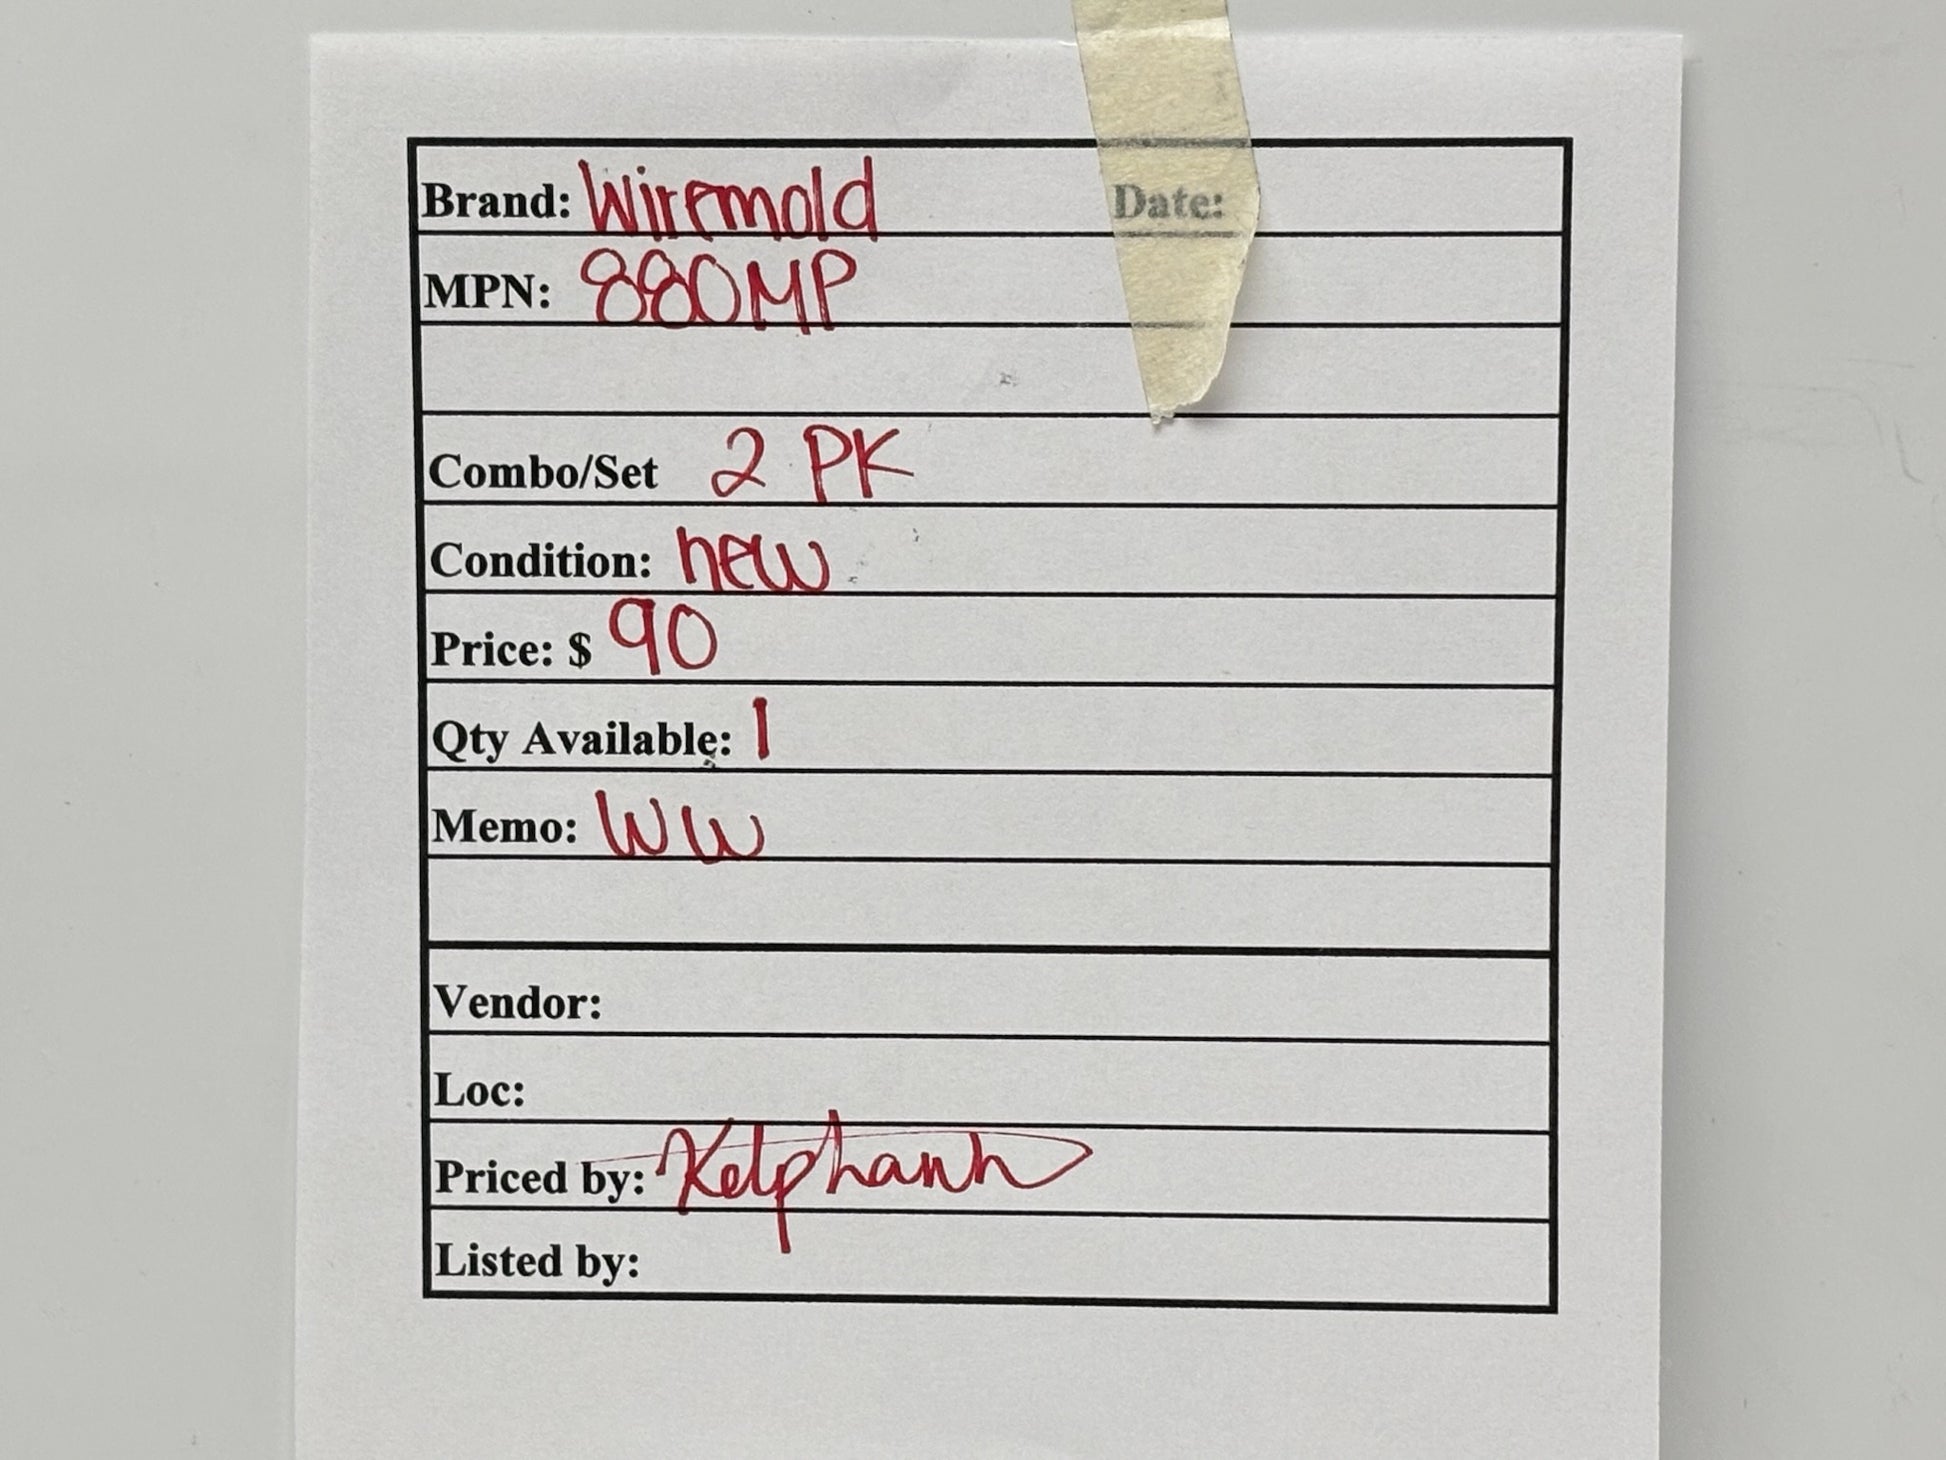 Brand: Wiremold Date:
MPN: 880MP
Combo/Set 2 PK
Condition: new
Price: $ 90
Qty Available: 1
Memo: WW
Vendor:
Loc:
Priced by:
Listed by: